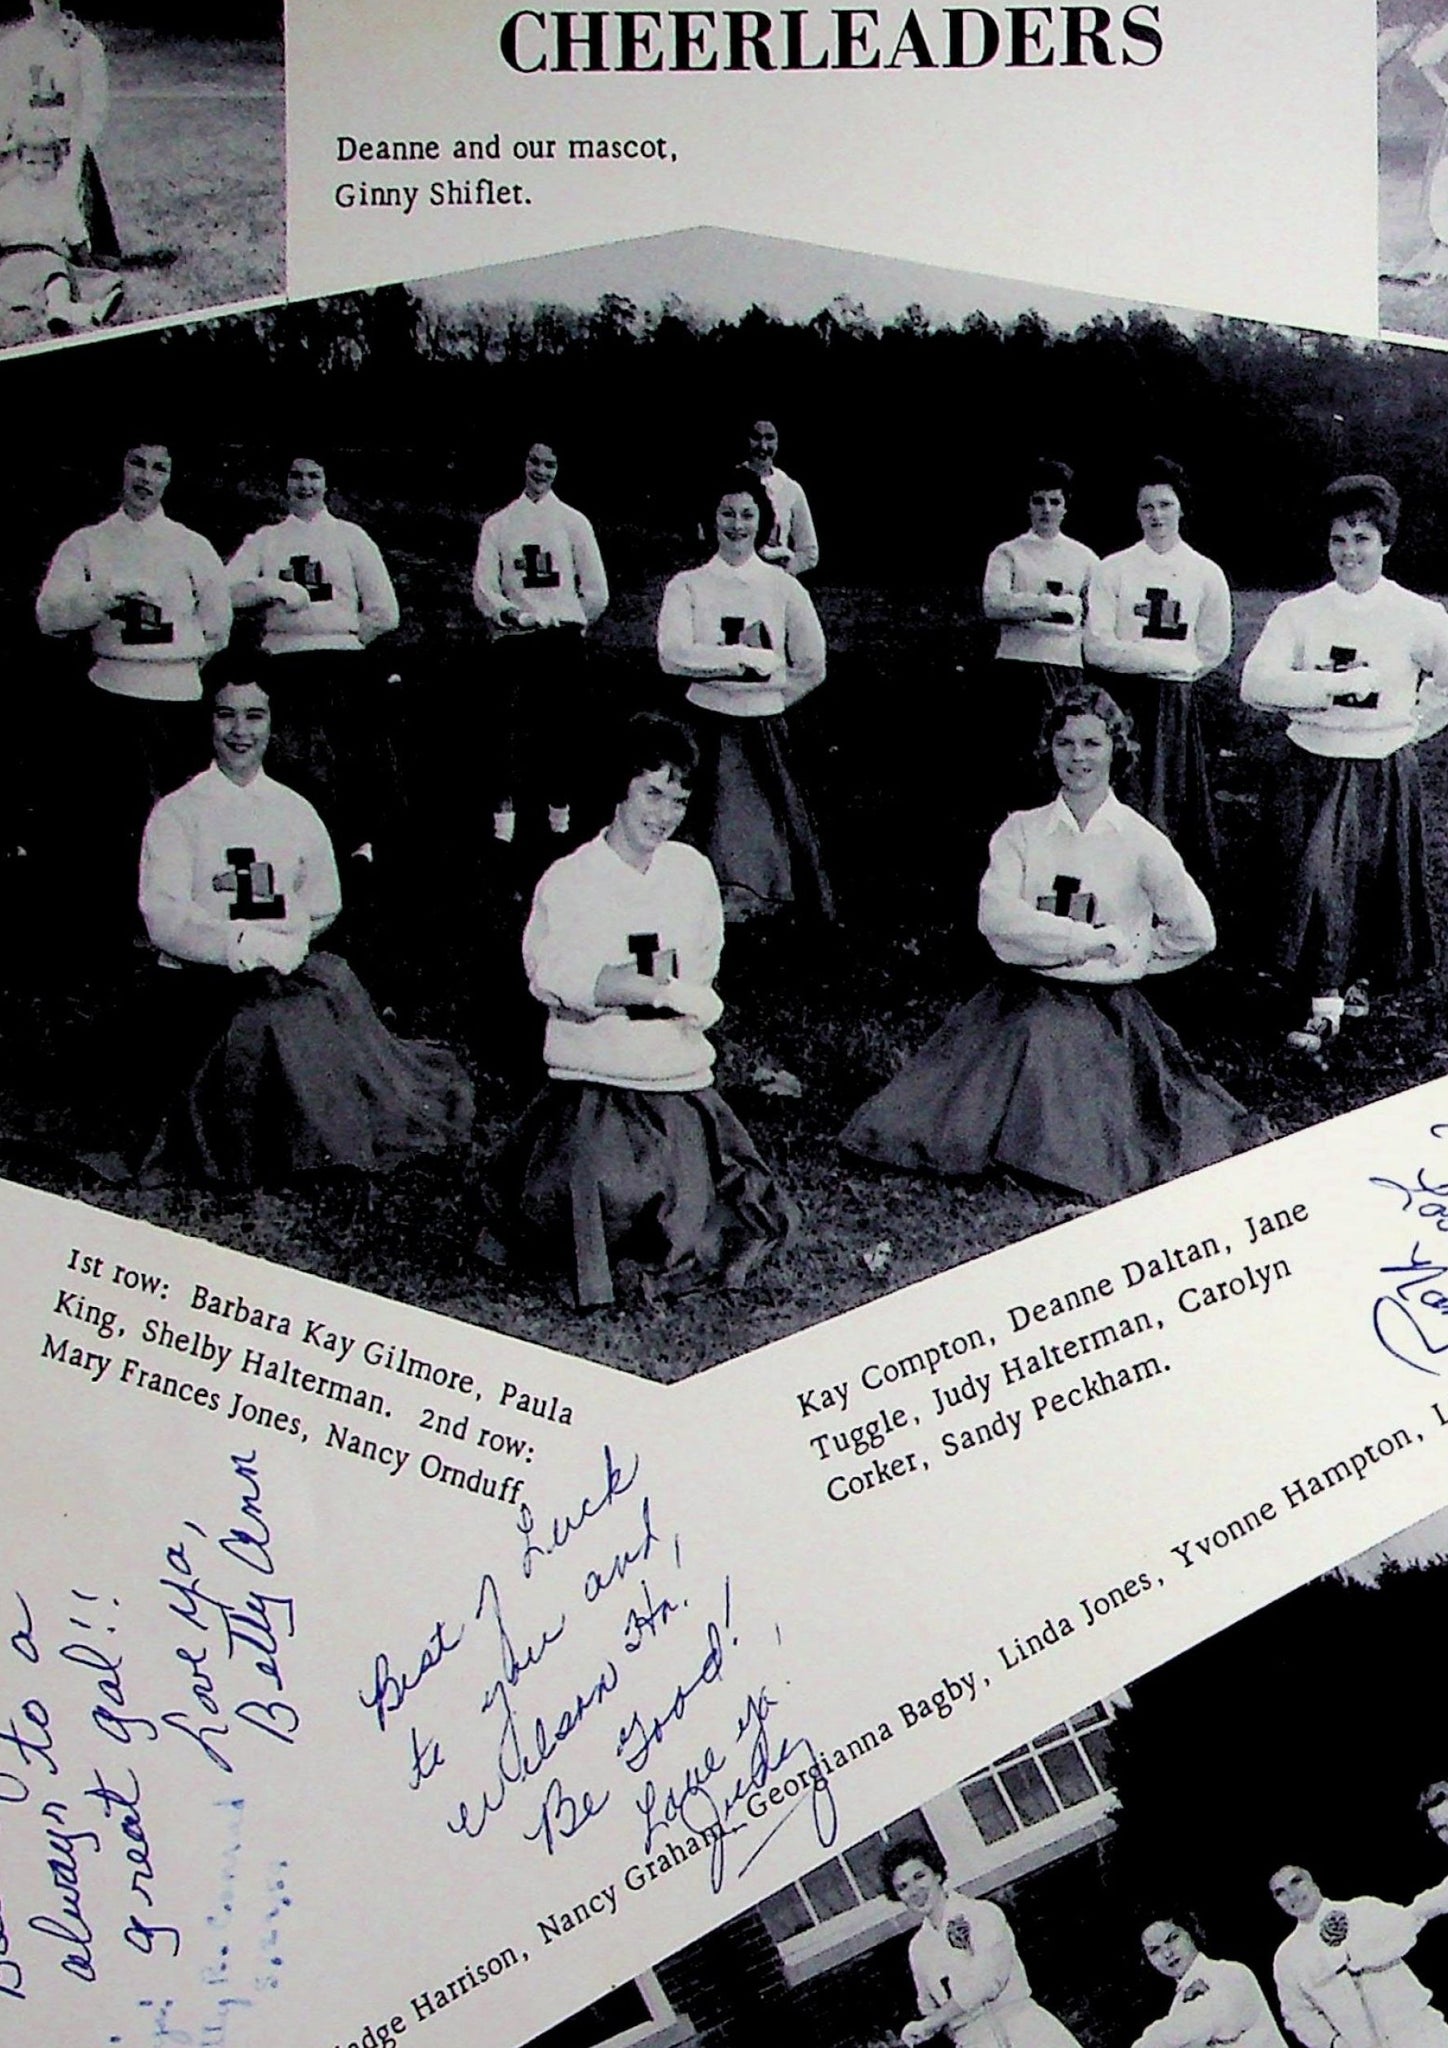 CHEERLEADERS
Deanne and our mascot,
Ginny Shiflet.
1st row: Barbara Kay Gilmore, Paula
King, Shelby Halterman. 2nd row:
Mary Frances Jones, Nancy Ornduff,
Kay Compton, Deanne Daltan, Jane
Tuggle, Judy Halterman, Carolyn
Corker, Sandy Peckham.
to a
always
great gal!!
Love ya,
Betty Ann
Best of Luck
to you and
Wilson Hr.
Be Good!
Love ya,
Judy
Harrison, Nancy Graham, Georgianna Bagby, Linda Jones, Yvonne Hampton,